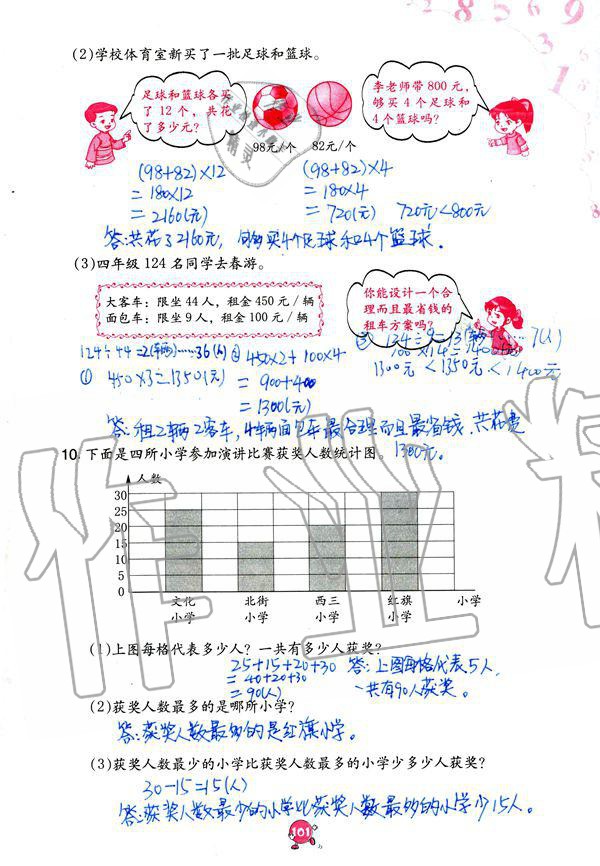 (2)学校体育室新买了一批足球和篮球。
足球和篮球各买
了 12 个，共花
了多少元？
李老师带 800 元，
够买 4 个足球和
4 个篮球吗？
98元/个 82元/个
(98+82)×12
=180×12
=2160(元)
(98+82)×4
=180×4
=720(元) 720元<800元
答:共花了2160元，
买4个足球和4个篮球.
(3)四年级 124 名同学去春游。
大客车：限坐 44 人，租金 450 元/辆
面包车：限坐 9 人，租金 100 元/辆
你能设计一个合
理而且最省钱的
租车方案吗？
124÷44=2(辆)……36(人)
① 450×3=1350(元)
② 450×2+100×4
=900+400
=1300(元)
1300元<1350元<1400元
答:租2辆大客车，4辆面包车最合理而且最省钱.共花费
1300元.
10. 下面是四所小学参加演讲比赛获奖人数统计图。
人数
30
25
20
15
10
5
0
文化小学 北街小学 西三小学 红旗小学 小学
(1)上图每格代表多少人？一共有多少人获奖？
25+15+20+30
=40+20+30
=90(人)
答:上图每格代表5人，
一共有90人获奖。
(2)获奖人数最多的是哪所小学？
答:获奖人数最多的是红旗小学。
(3)获奖人数最少的小学比获奖人数最多的小学少多少人获奖？
30-15=15(人)
答:获奖人数最少的小学比获奖人数最多的小学少15人。
101